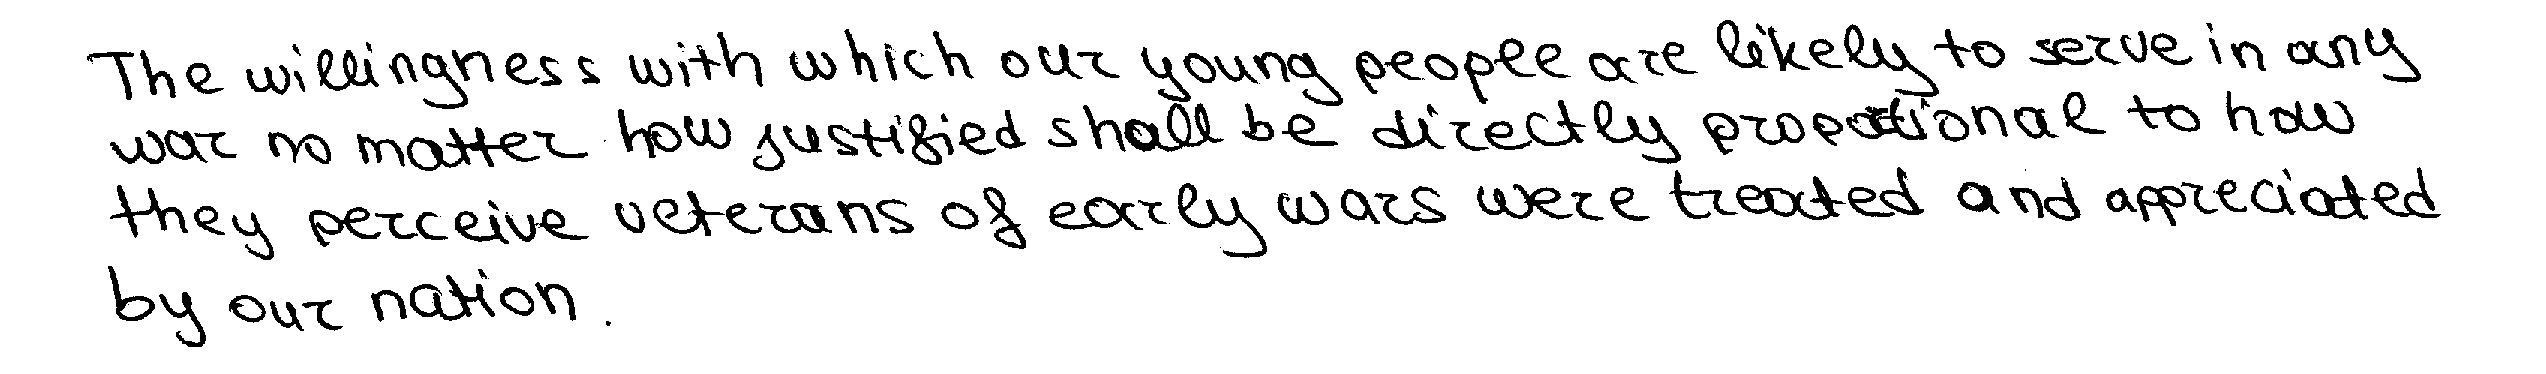 The willingness with which our young people are likely to serve in any
war no matter how justified shall be directly propotional to how
they perceive veterans of early wars were treated and appreciated
by our nation.